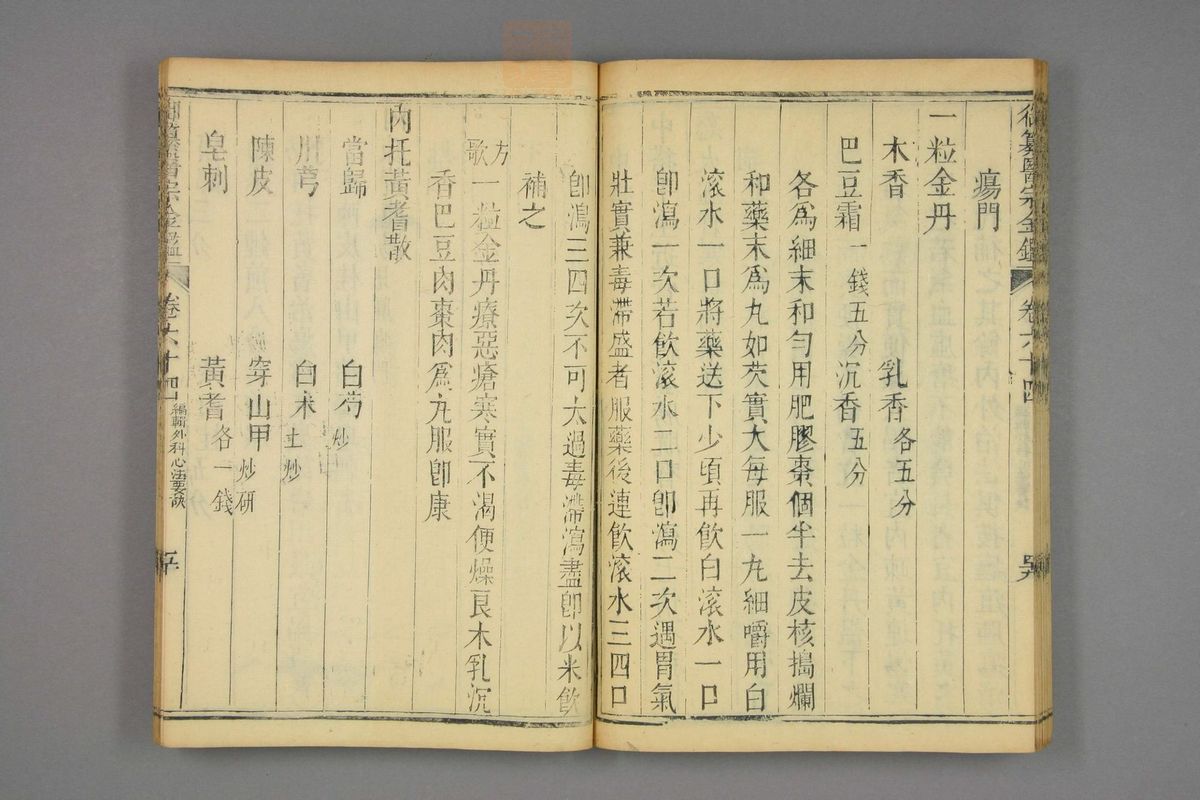 御纂醫宗金鑑 卷六十四
瘍門
一粒金丹
木香 乳香各五分
巴豆霜一錢五分沉香五分
各爲細末和勻用肥膠棗個半去皮核搗爛
和藥末爲丸如芡實大每服一丸細嚼用白
滾水一口將藥送下少頃再飲白滾水一口
卽瀉一次若飲滾水二口卽瀉二次遇胃氣
壯實兼毒滯盛者服藥後連飲滾水三四口
卽瀉三四次不可太過毒滯瀉盡卽以米飲
補之
方歌一粒金丹療惡瘡寒實不渴便燥良木乳沉
香巴豆肉棗肉爲丸服卽康
內托黃耆散
當歸 白芍炒
川芎 白朮土炒
陳皮 穿山甲炒研
皁刺 黃耆各一錢
御纂醫宗金鑑 卷六十四 編輯外科心法要訣